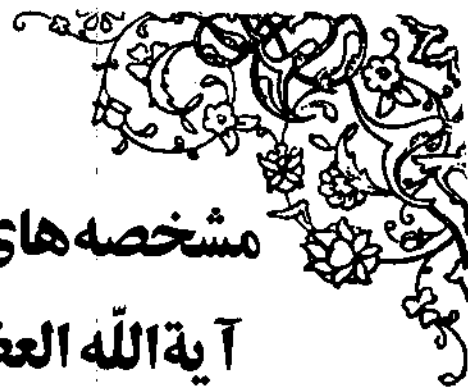 مشخصه‌های
آیةاللّه